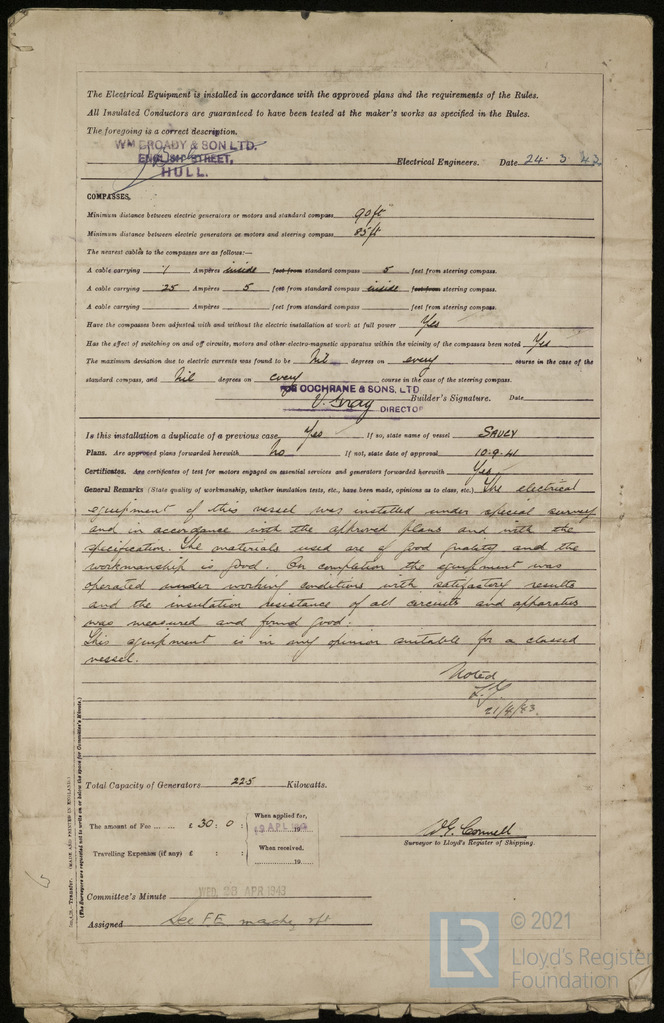 The Electrical Equipment is installed in accordance with the approved plans and the requirements of the Rules.
All Insulated Conductors are guaranteed to have been tested at the maker's works as specified in the Rules.
The foregoing is a correct description.
WM BROADY & SON LTD.
ENGLISH STREET,
HULL.
Electrical Engineers. Date 24. 3 43
COMPASSES.
Minimum distance between electric generators or motors and standard compass 90 ft
Minimum distance between electric generators or motors and steering compass 85 ft
The nearest cables to the compasses are as follows:—
A cable carrying .1 Ampères inside feet from standard compass 5 feet from steering compass.
A cable carrying .25 Ampères 5 feet from standard compass inside feet from steering compass.
A cable carrying Ampères feet from standard compass feet from steering compass.
Have the compasses been adjusted with and without the electric installation at work at full power Yes
Has the effect of switching on and off circuits, motors and other electro-magnetic apparatus within the vicinity of the compasses been noted Yes
The maximum deviation due to electric currents was found to be Nil degrees on every course in the case of the
standard compass, and Nil degrees on every course in the case of the steering compass.
FOR COCHRANE & SONS, LTD
Gray DIRECTOR Builder's Signature. Date
Is this installation a duplicate of a previous case Yes If so, state name of vessel SAUCY
Plans. Are approved plans forwarded herewith No If not, state date of approval 10.9.41
Certificates. Are certificates of test for motors engaged on essential services and generators forwarded herewith Yes
General Remarks (State quality of workmanship, whether insulation tests, etc., have been made, opinions as to class, etc.) The electrical
equipment of this vessel was installed under special survey
and in accordance with the approved plans and with the
specification. The materials used are of good quality and the
workmanship is good. On completion the equipment was
operated under working conditions with satisfactory results
and the insulation resistance of all circuits and apparatus
was measured and found good.
This equipment is in my opinion suitable for a classed
vessel.
Noted
21/4/43.
Total Capacity of Generators 22.5 Kilowatts.
The amount of Fee ... ... £ 30 : 0 : When applied for, APL 19
Travelling Expenses (if any) £ : : When received, 19
Connell
Surveyor to Lloyd's Register of Shipping.
Committee's Minute WED. 28 APR 1943
Assigned See F.E. machy rpt
Transfer. (MADE AND PRINTED IN ENGLAND.)
(The Surveyors are requested not to write on or below the space for Committee's Minute.)
LR
© 2021
Lloyd's Register
Foundation